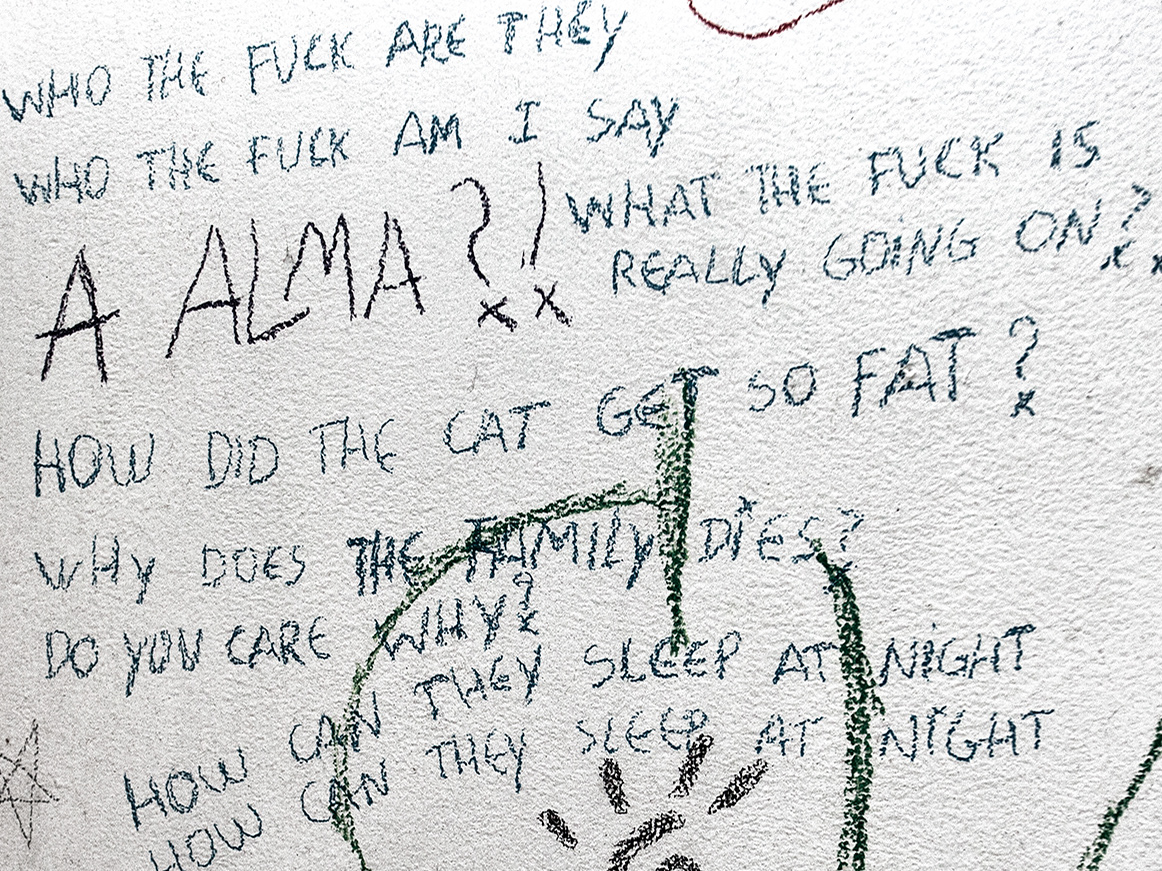 WHO THE FUCK ARE THEY
WHO THE FUCK AM I SAY
A ALMA?!
WHAT THE FUCK IS
REALLY GOING ON?
HOW DID THE CAT GET SO FAT?
WHY DOES THE FAMILY DIES?
DO YOU CARE WHY?
HOW CAN THEY SLEEP AT NIGHT
HOW CAN THEY SLEEP AT NIGHT